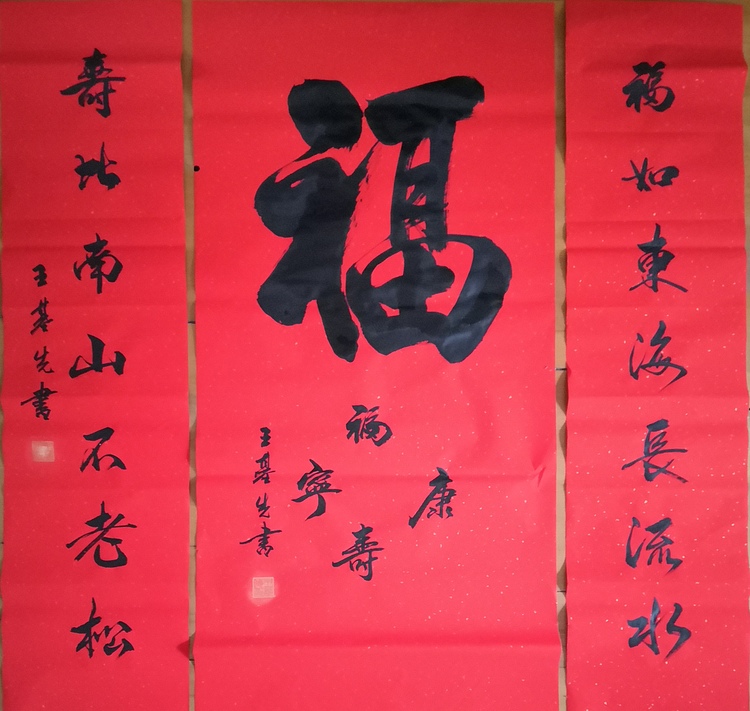 福如東海長流水
福
福壽康寧
王基先書
壽比南山不老松
王基先書